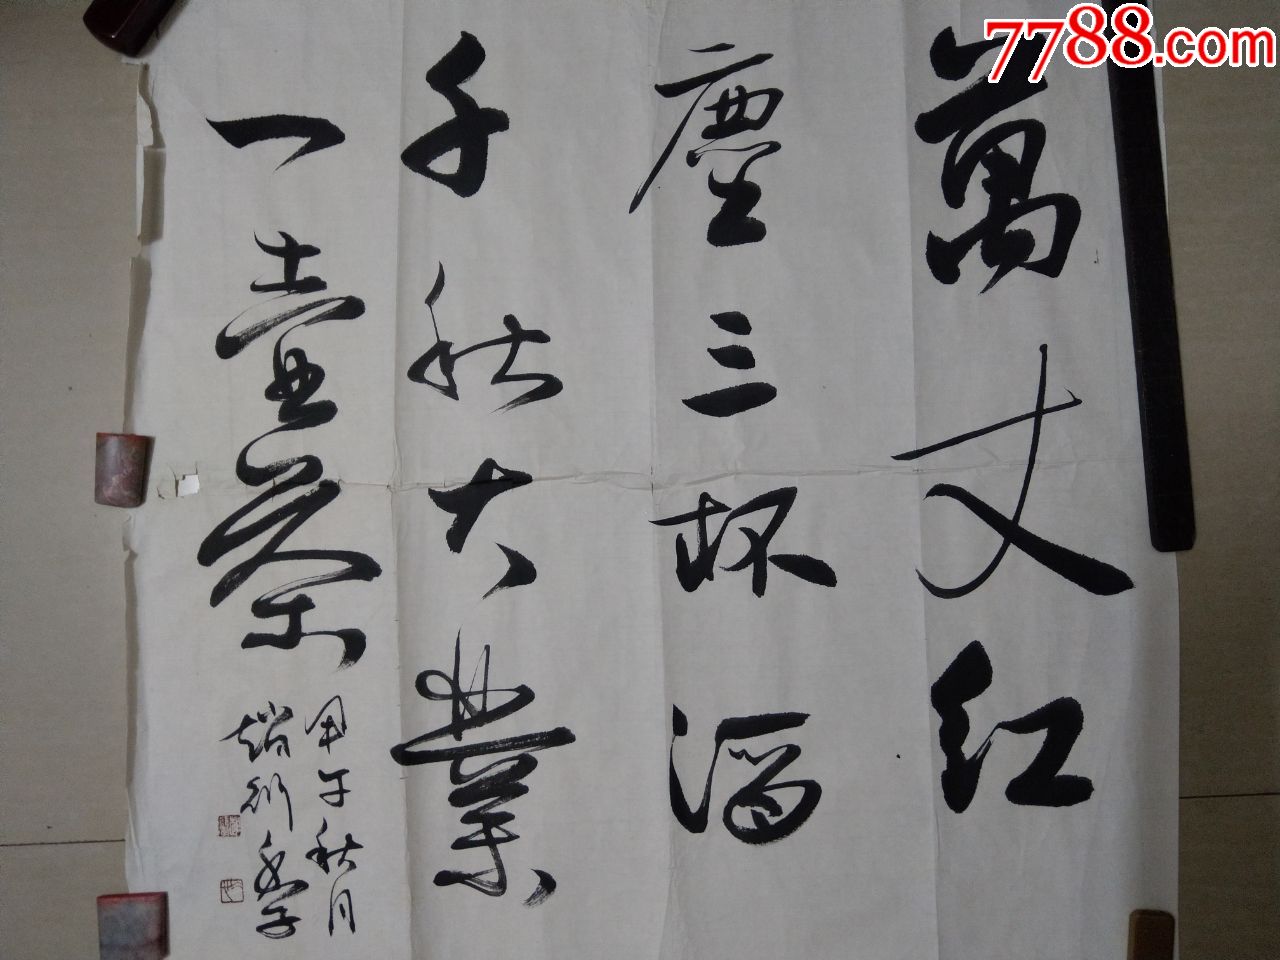 7788.com
萬丈红
塵三杯酒
千秋大業
一壺茶
甲午秋月
趙衍